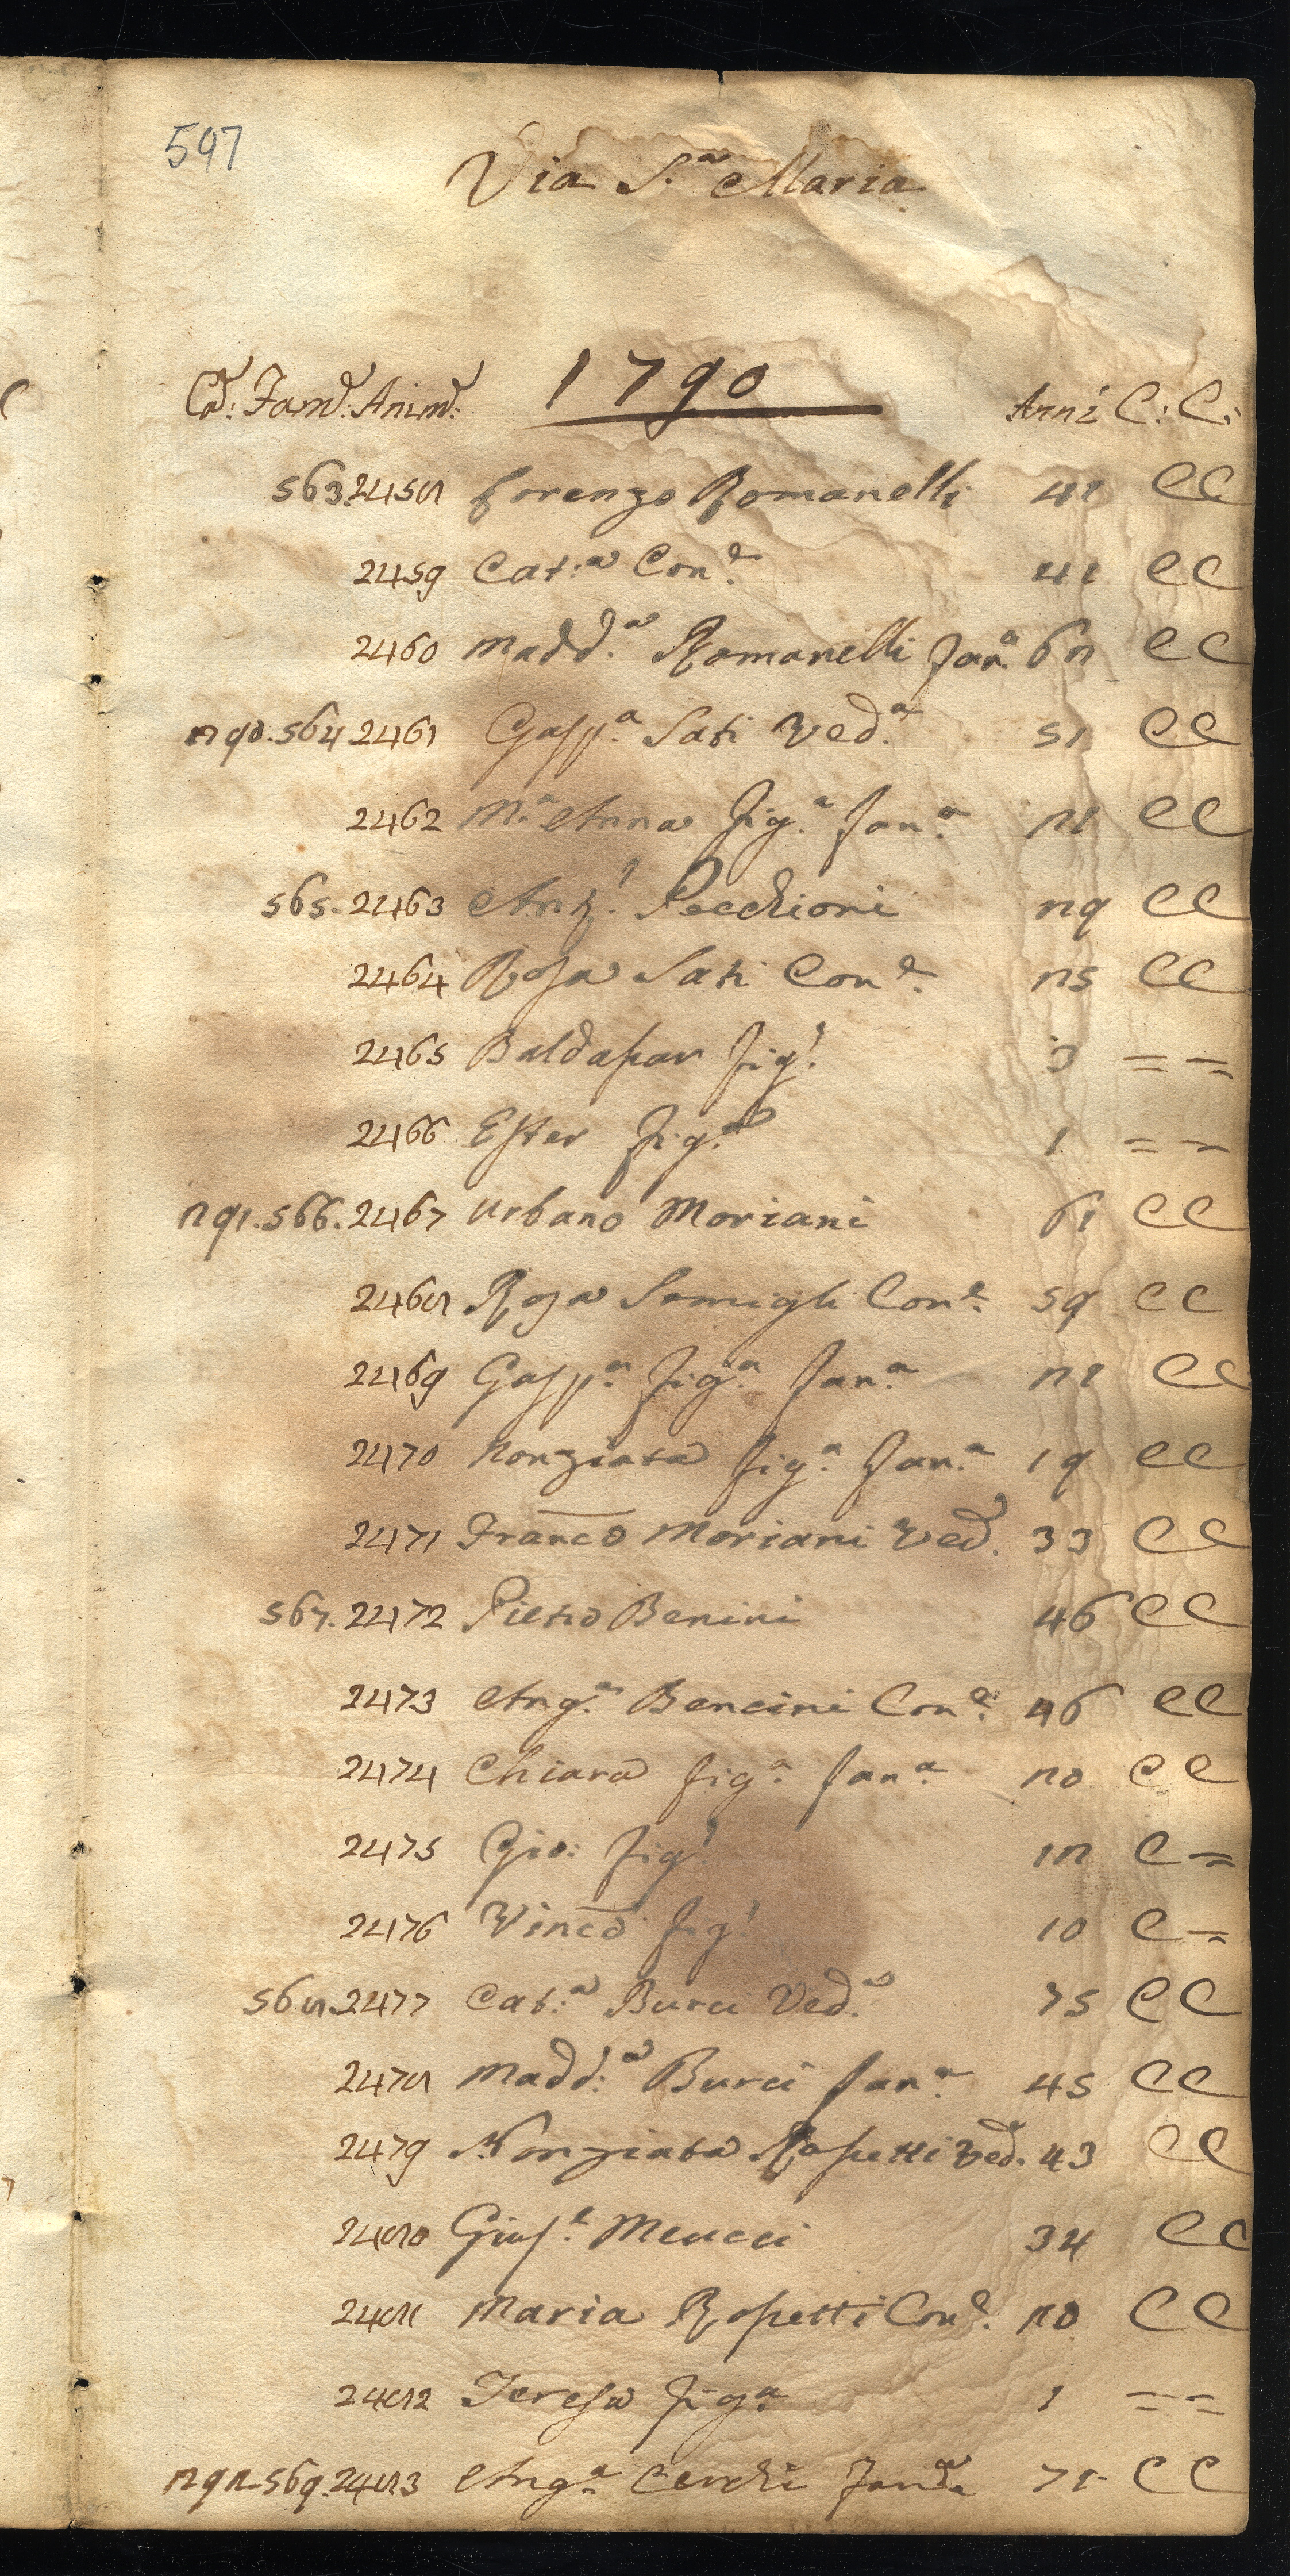 597
Via S.a Maria
1790
Cd: Famd: Animd: Anni C: C:
563. 2458 Lorenzo Romanelli 41 CC
2459 Cat:a Con.e 41 CC
2460 Madd.a Romanelli fan.a 62 CC
290. 564. 2461 Gasp.a Sati Ved.a 51 CC
2462 M.a Anna fig.a fan.a 21 CC
565. 2463 Ant.o Pecchioni 29 CC
2464 Rosa Sati Con.e 25 CC
2465 Baldasar fig.o 3 = =
2466 Ester fig.a 1 = =
291. 566. 2467 Urbano Moriani 61 CC
2468 Rosa Con.e 59 CC
2469 Gasp.a fig.a fan.a 21 CC
2470 Nonziata fig.a fan.a 19 CC
2471 Franco Moriani Ved. 33 CC
567. 2472 Pietro Benini 46 CC
2473 Ang.a Bencini Con.e 46 CC
2474 Chiara fig.a fan.a 20 CC
2475 Gio: fig.o 12 C =
2476 Vinco fig.o 10 C =
568. 2477 Cat:a Burci Ved.a 75 CC
2478 Madd:a Burci fan.a 45 CC
2479 Nonziata Ropetti Ved. 43 CC
2480 Gius.e Meucci 34 CC
2481 Maria Ropetti Con.e 20 CC
2482 Teresa fig.a 1 = =
292. 569. 2483 Ang.a Cerchi 71 CC